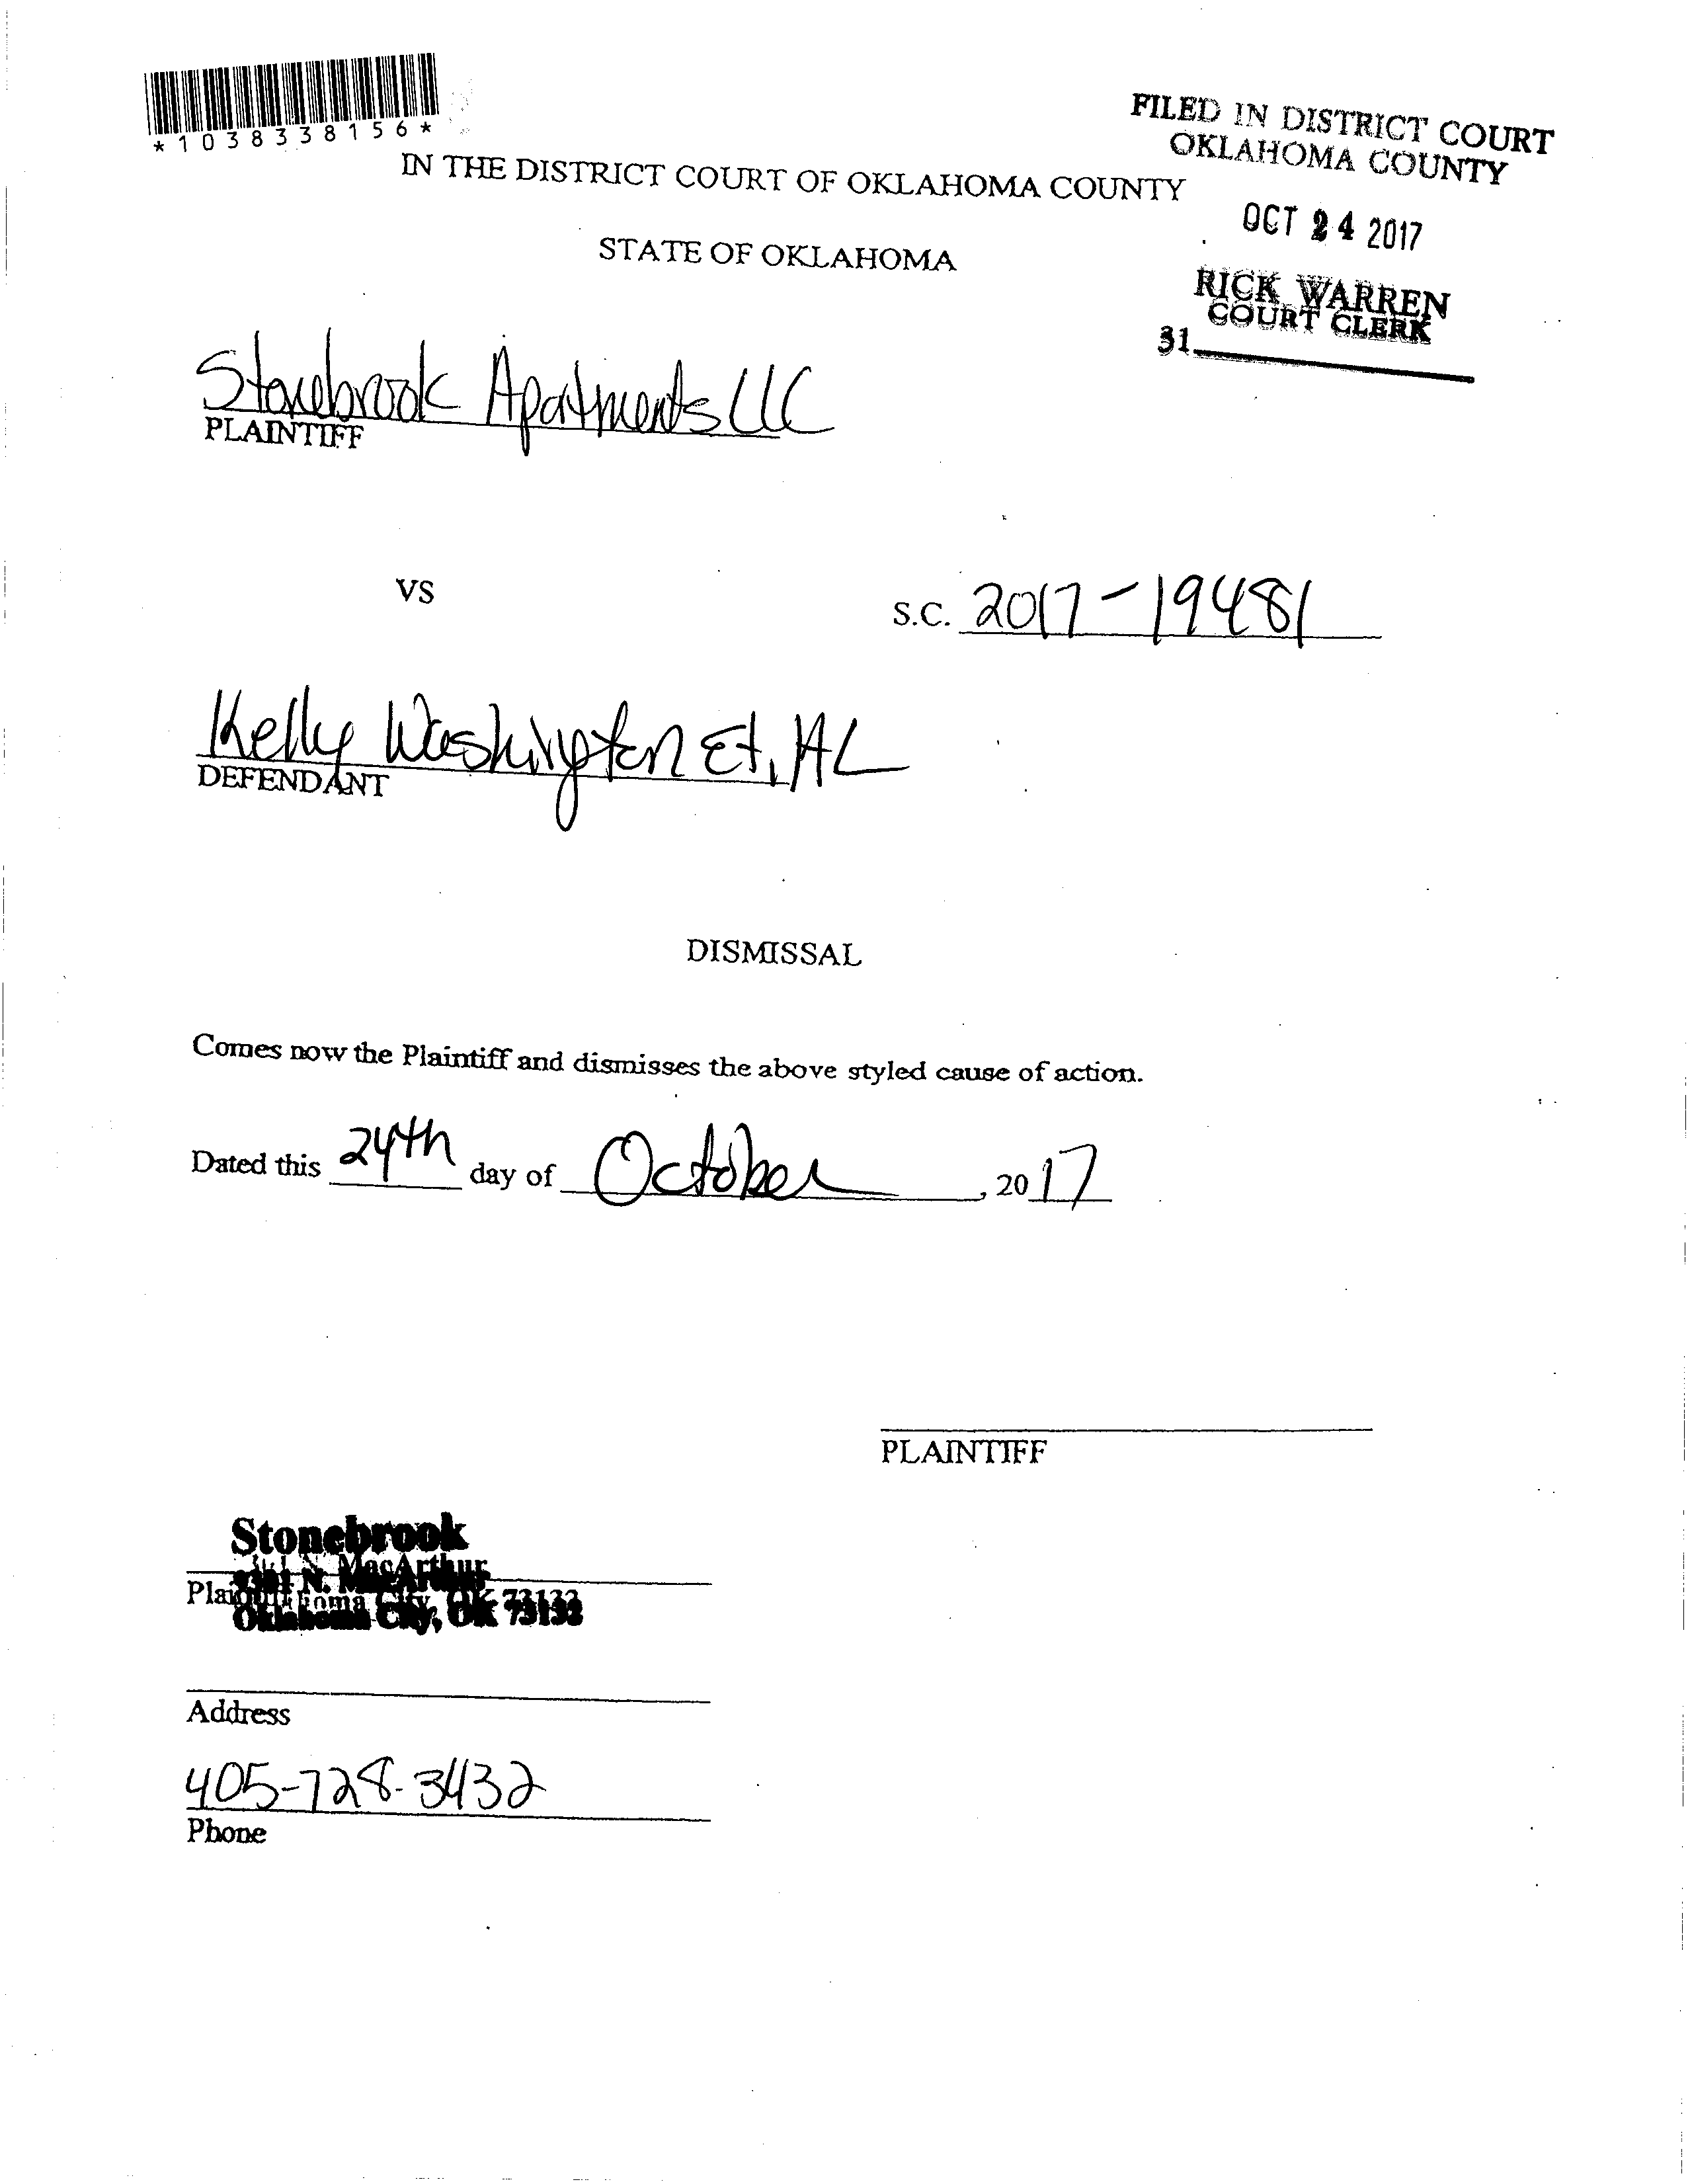 *1038338156*
FILED IN DISTRICT COURT
OKLAHOMA COUNTY
IN THE DISTRICT COURT OF OKLAHOMA COUNTY
OCT 24 2017
STATE OF OKLAHOMA
RICK WARREN
COURT CLERK
31
Stonebrook Apartments LLC
PLAINTIFF
VS
S.C. 2017-19481
Kelly Washington Et, AL
DEFENDANT
DISMISSAL
Comes now the Plaintiff and dismisses the above styled cause of action.
Dated this 24th day of October, 2017
PLAINTIFF
Stonebrook
N. MacArthur
Oklahoma City, OK 73132
Address
405-728-3432
Phone